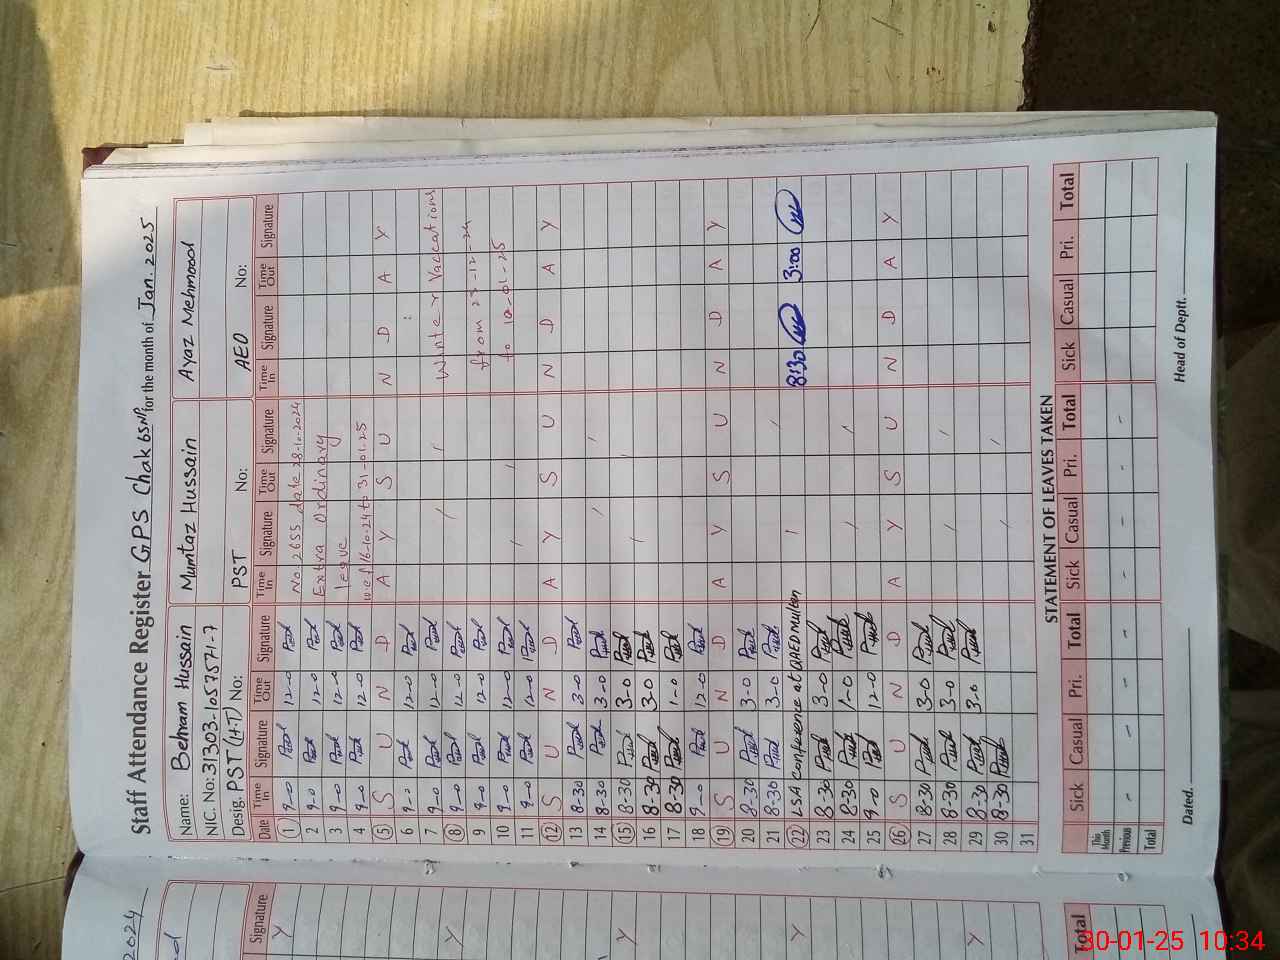 Staff Attendance Register GPS Chak 65NP. for the month of Jan. 2025
Name: Behram Hussain Mumtaz Hussain Ayaz Mehmood
NIC. No: 31303-1057571-7
Desig. PST (H.T) No: PST No: AEO No:
Date Time In Signature Time Out Signature Time In Signature Time Out Signature Time In Signature Time Out Signature
1 9-0 12-0 No 2655 date 28-10-2024
2 9-0 12-0 Extra Ordinary
3 9-0 12-0 leave
4 9-0 12-0 w.e.f 16-10-24 to 31-01-25
5 S U N D A Y S U N D A Y
6 9-0 12-0
7 9-0 12-0 Winter Vaccations
8 9-0 12-0
9 9-0 12-0 from 23-12-24
10 9-0 12-0 to 10-01-25
11 9-0 12-0
12 S U N D A Y S U N D A Y
13 8-30 3-0
14 8-30 3-0
15 8-30 3-0
16 8-30 3-0
17 8-30 1-0
18 9-0 12-0
19 S U N D A Y S U N D A Y
20 8-30 3-0
21 8-30 3-0
22 LSA conference at QAED Multan 8:30 3:00
23 8-30 3-0
24 8-30 1-0
25 9-0 12-0
26 S U N D A Y S U N D A Y
27 8-30 3-0
28 8-30 3-0
29 8-30 3-0
30 8-30
31
STATEMENT OF LEAVES TAKEN
Sick Casual Pri. Total Sick Casual Pri. Total Sick Casual Pri. Total
This Month
Previous - - - - - - - -
Total
Dated. Head of Deptt.
2024
Signature
Y
Y
Y
Y
Y
Total
30-01-25 10:34